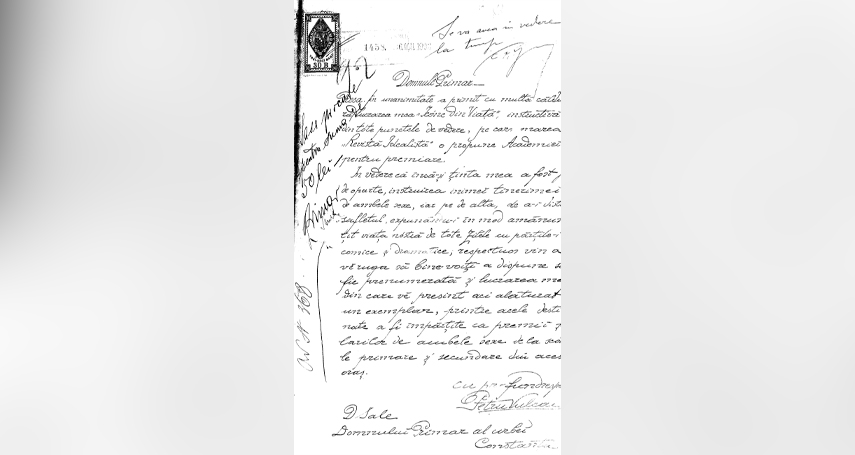 30 B
1458
Se va avea în vedere
la timp
Domnule Primar
Presa în unanimitate a primit cu multă căldu
lucrarea mea „Icone din Viață”, instructivă
din tote punctele de vedere, pe care marea
„Revistă Idealistă” o propune Academiei
pentru premiare.
În vedere că însăși ținta mea a fost,
de oparte, instruirea inimei tinerimei
de ambele sexe, iar pe de alta, de a-i dist
sufletul, expunându-i în mod amănun
țit viața nostră de tote zilele cu părțile-i
comice și dramatice, respectuos vin a
vĕ ruga să bine voiți a dispune s
fie prenumerată și lucrarea me
din care vĕ presint aci alăturat
un exemplar, printre acele desti
nate a fi împărțite ca premii ș
larilor de ambele sexe de la șco
le primare și secundare din aces
oraș.
cu profund resp
Petru Vulcan
D. Sale
Domnului Primar al urbei
Constanța
pentru suma de
50 lei
Primar
No 368